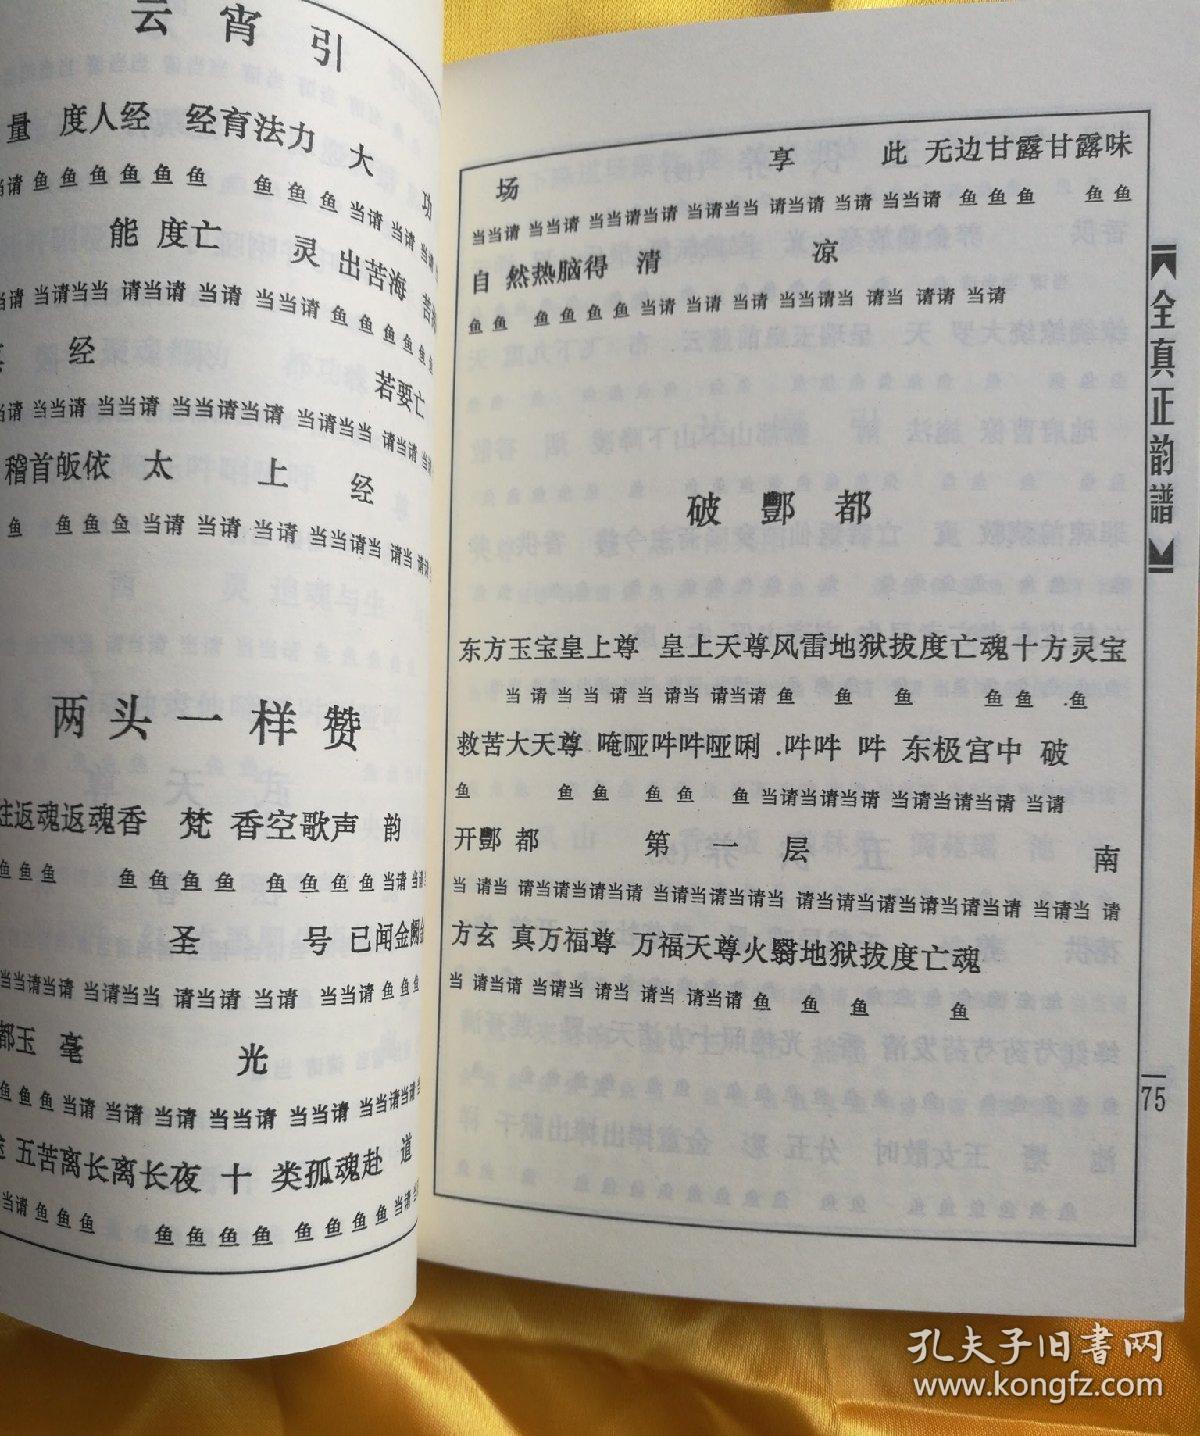 云宵引
量 度人经 经育法力 大 功
当请 鱼鱼鱼鱼鱼鱼 鱼鱼鱼 当请 当请
能 度亡 灵 出苦海
当请 当请当当 请当请 当请 当当请 鱼鱼鱼鱼鱼
经 若要亡
当请 当当请 当当请 当当请当请 当请当当 请当请
稽首皈依 太 上 经
鱼 鱼鱼鱼 当请 当请 当请 当当请当 请当
两头一样赞
返魂返魂香 梵 香空歌声 韵
鱼鱼鱼 鱼鱼鱼鱼 鱼鱼鱼鱼 当请
圣 号 已闻金阙
当当请当请 当请当当 请当请 当请 当当请 鱼鱼鱼
都玉 毫 光
鱼鱼鱼 当请 当请 当请 当当请 当当请 当当请当当请
五苦离长离长夜 十 类孤魂赴 道
当当请 鱼鱼鱼 鱼鱼鱼鱼 鱼鱼鱼鱼 当请
场 享 此 无边甘露甘露味
当当请 当当请 当当请当请 当请当当 请当请 当请 当当请 鱼鱼鱼 鱼鱼
自 然热脑得 清 凉
鱼鱼 鱼鱼鱼鱼 当请 当请 当请 当当请当 请当 请请 当请
破酆都
东方玉宝皇上尊 皇上天尊风雷地狱拔度亡魂十方灵宝
当请当当请当 请当请 请当请 鱼 鱼 鱼 鱼鱼 鱼
救苦大天尊 唵哑吽吽哑唎 吽吽 吽 东极宫中 破
鱼 鱼鱼 鱼鱼 鱼 当请当请当请 当请当请当请 当请
开酆都 第一层 南
当 请当 请当请当请当请 当请当请当请当 请当请当请当请当请当请 当请当 请
方玄 真万福尊 万福天尊火翳地狱拔度亡魂
当 请当请 当请当 请当 请当 请当请 鱼 鱼 鱼 鱼
全真正韵譜
75
孔夫子旧书网
www.kongfz.com